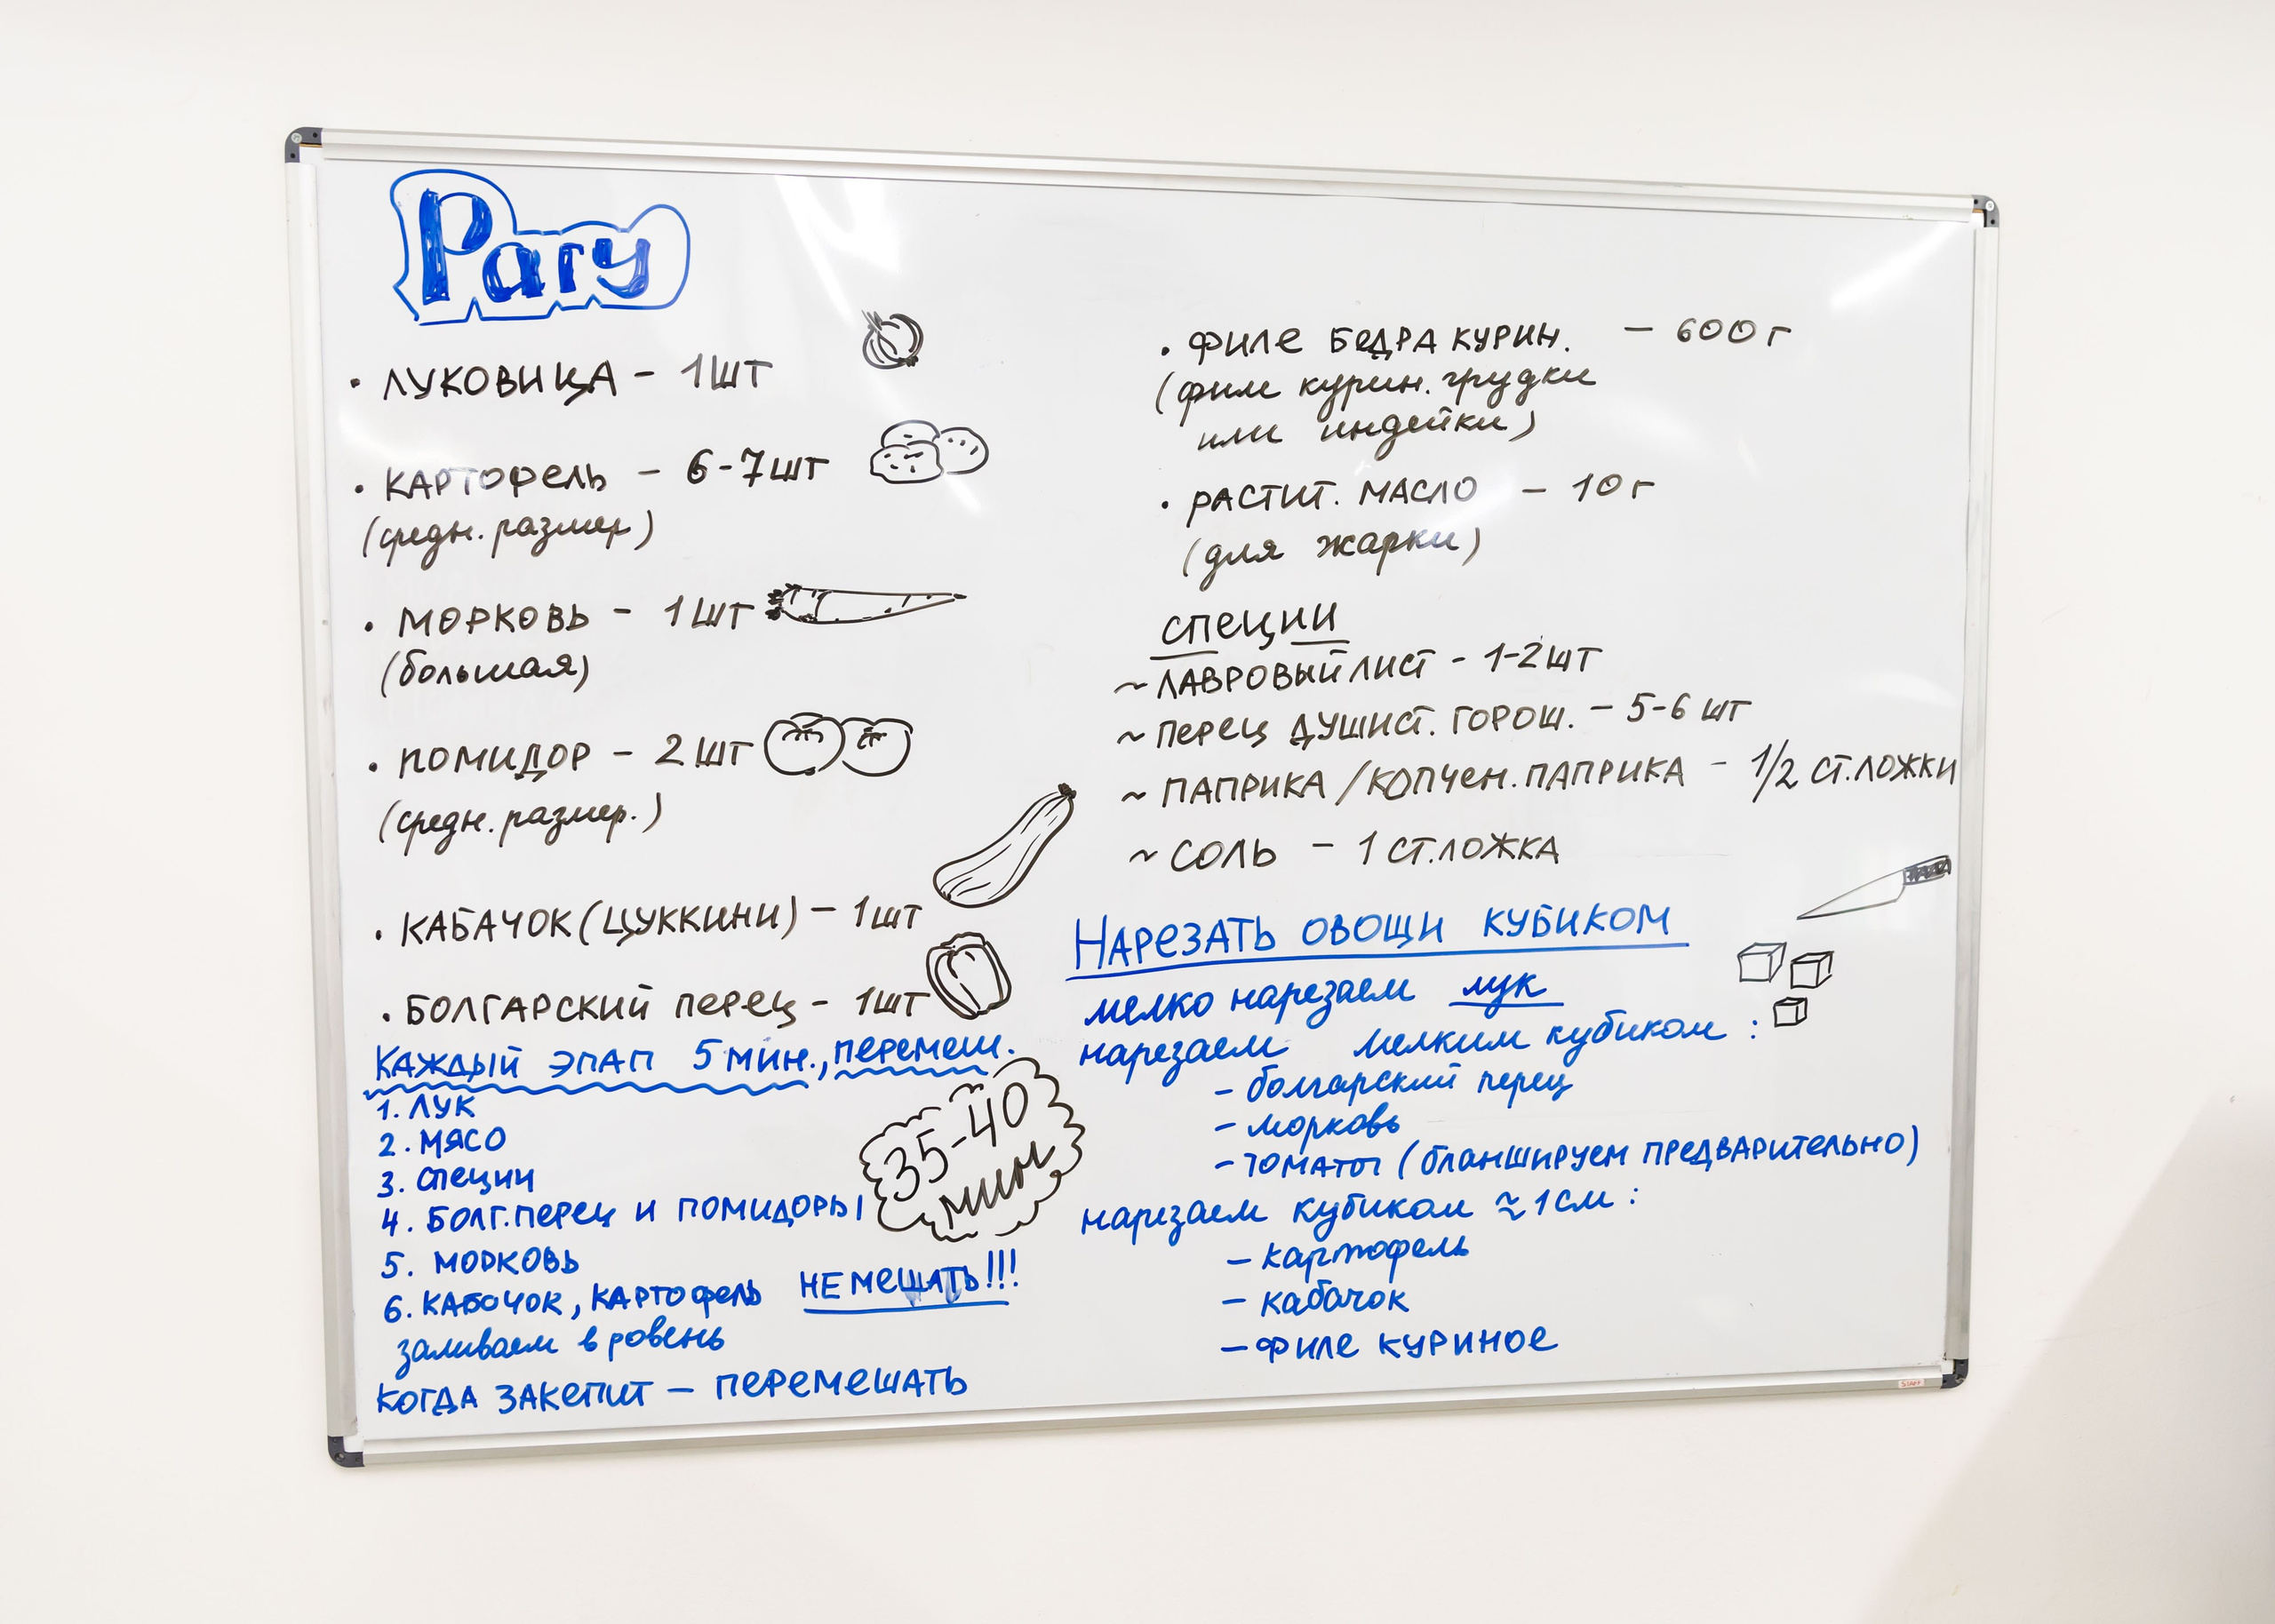 Рагу
• ЛУКОВИЦА - 1 ШТ
• КАРТОФЕЛЬ - 6-7 ШТ
(средн. размер)
• МОРКОВЬ - 1 ШТ
(большая)
• ПОМИДОР - 2 ШТ
(средн. размер.)
• КАБАЧОК (ЦУККИНИ) - 1 ШТ
• БОЛГАРСКИЙ ПЕРЕЦ - 1 ШТ
КАЖДЫЙ ЭПАП 5 МИН., перемеш.
1. ЛУК
2. МЯСО
3. СПЕЦИИ
4. БОЛГ. ПЕРЕЦ И ПОМИДОРЫ
5. МОРКОВЬ
6. КАБОЧОК, КАРТОФЕЛЬ НЕ МЕШАТЬ!!!
заливаем в ровень
КОГДА ЗАКЕПИТ - ПЕРЕМЕШАТЬ
35-40
мин
• ФИЛЕ БЕДРА КУРИН. - 600 г
(филе курин. грудки
или индейки)
• РАСТИТ. МАСЛО - 10 г
(для жарки)
СПЕЦИИ
~ ЛАВРОВЫЙ ЛИСТ - 1-2 ШТ
~ ПЕРЕЦ ДУШИСТ. ГОРОШ. - 5-6 ШТ
~ ПАПРИКА / КОПЧЕН. ПАПРИКА - 1/2 СТ. ЛОЖКИ
~ СОЛЬ - 1 СТ. ЛОЖКА
НАРЕЗАТЬ ОВОЩИ КУБИКОМ
мелко нарезаем лук
нарезаем мелким кубиком:
- болгарский перец
- морковь
- томаты (бланшируем предварительно)
нарезаем кубиком ≈ 1 см:
- картофель
- кабачок
- ФИЛЕ КУРИНОЕ